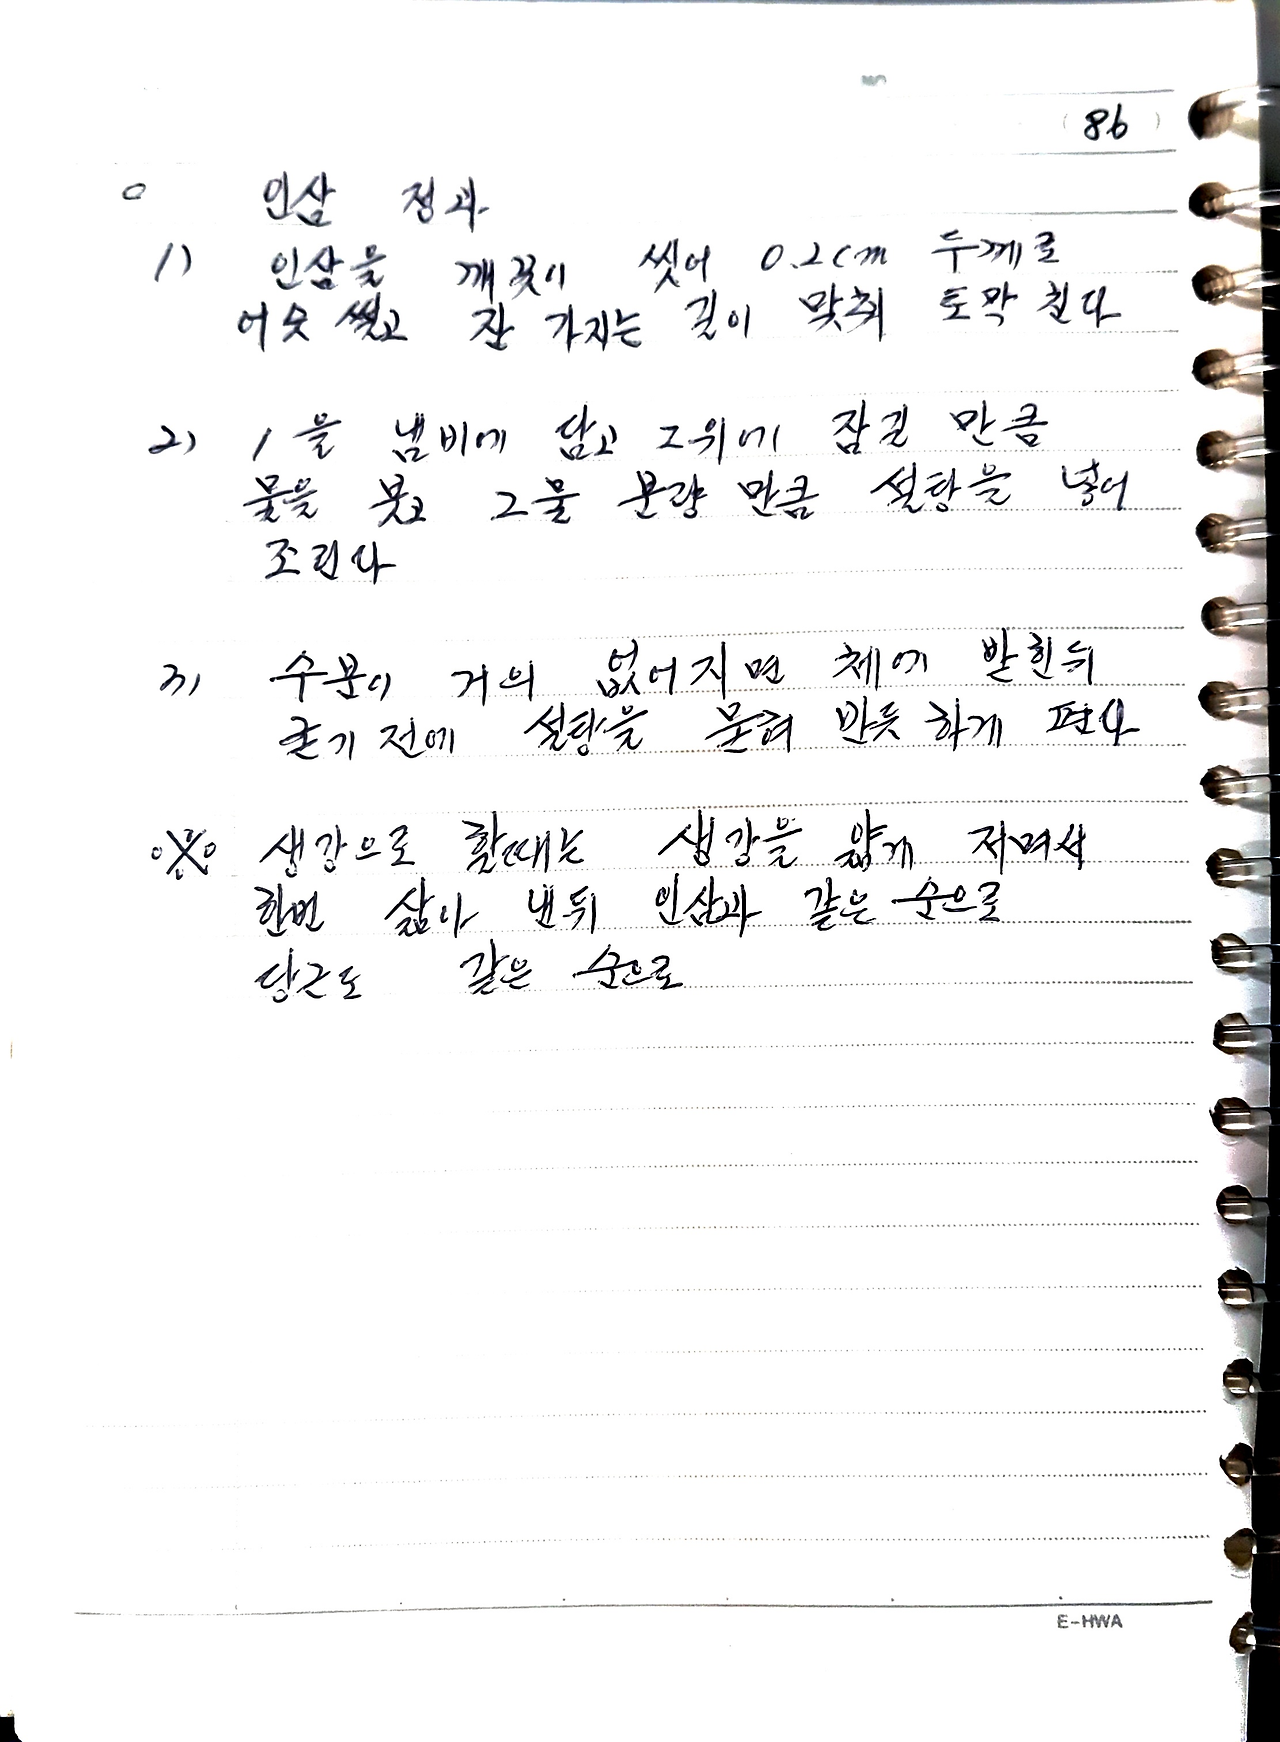 (86)
○ 인삼 정과
1) 인삼을 깨끗이 씻어 0.2cm 두께로
어슷 썰고 잔 가지는 길이 맞춰 토막 친다
2) 1을 냄비에 담고 그위에 잠길 만큼
물을 붓고 그물 분량 만큼 설탕을 넣어
조린다
3) 수분이 거의 없어지면 체에 받힌뒤
굳기 전에 설탕을 묻혀 반듯하게 편다
※ 생강으로 할때는 생강을 얇게 저며서
한번 삶아 낸뒤 인삼과 같은 순으로
당근도 같은 순으로
E-HWA